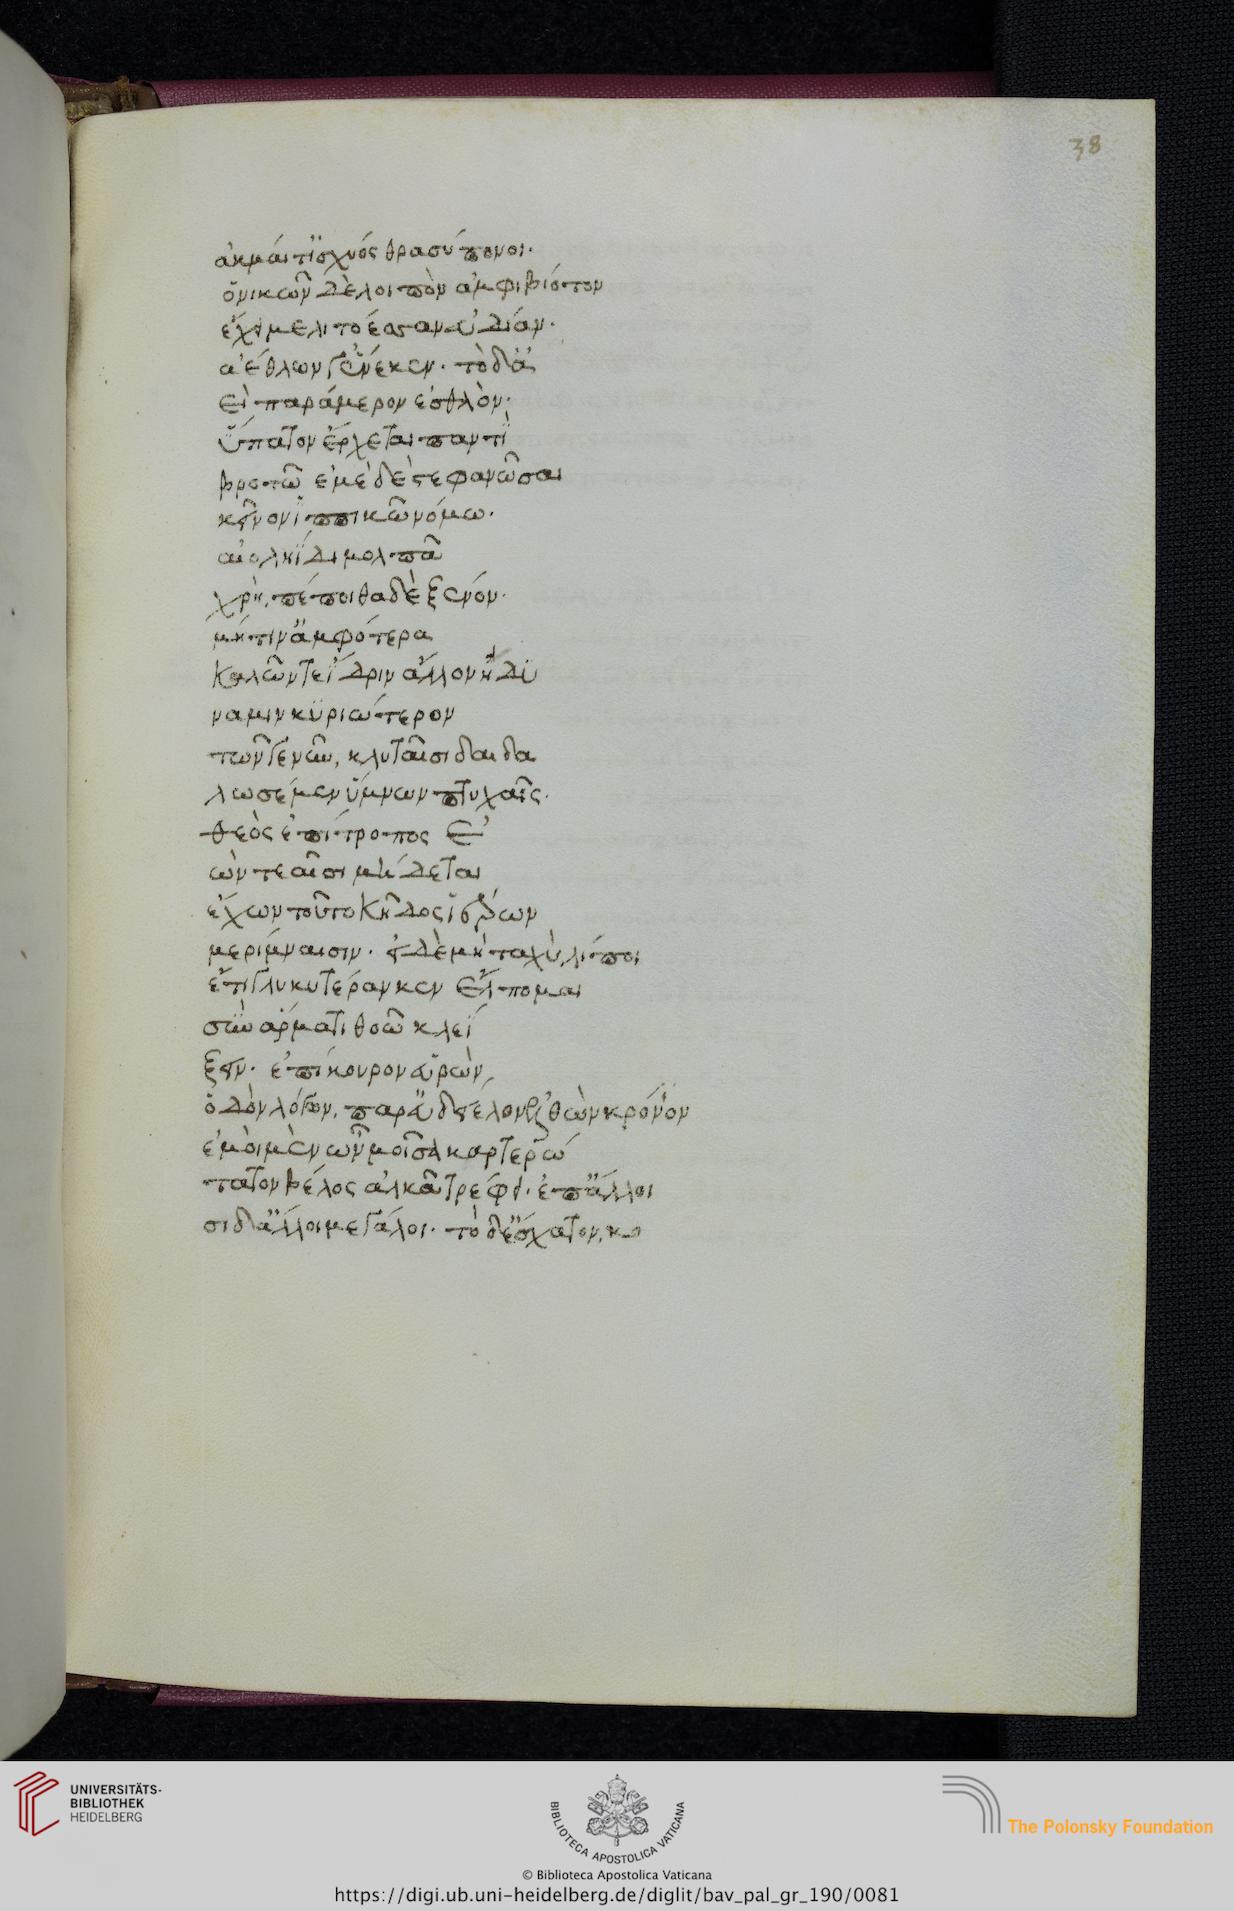 38
ἀκμάι τ' ἰσχύος θρασύπονοι·
ὁ νικῶν δὲ λοιπὸν ἀμφὶ βίοτον
ἔχει μελιτόεσσαν εὐδίαν·
ἀέθλων γ' ἕνεκεν· τὸ δ' ἀ
εὶ παράμερον ἐσθλὸν·
ὕπατον ἔρχεται παντὶ
βροτῶ ἐμὲ δὲ στεφανῶσαι
κεῖνον ἱππικῶ νόμω·
αἰοληΐδι μολπᾶ
χρὴ, πέποιθα δὲ ξενόν·
μή τιν' ἀμφότερα
καλῶν τε ἴδριν ἄλλον ἢ δύ
ναμιν κυριώτερον
τῶν γε νῦν, κλυταῖσι δαιδα
λωσέμεν ὕμνων πτυχαῖς·
θεὸς ἐπίτροπος ἐ
ὼν τεαῖσι μήδεται
ἔχων τοῦτο κῆδος ἱέρων
μερίμναισιν· εἰ δὲ μὴ ταχὺ, λίποι
ἔτι γλυκυτέραν κεν ἔλπομαι
σὺν ἅρματι θοῶ κλεΐ
ξειν· ἐπίκουρον εὑρὼν,
ὁδὸν λόγων, παρ' εὐδείελον ἐλθὼν κρόνιον
ἐμοὶ μὲν ὦν μοῖσα καρτερώ
τατον βέλος ἀλκᾶ τρέφει· ἐπ' ἄλλοι
σι δ' ἄλλοι μεγάλοι· τὸ δ' ἔσχατον, κο
UNIVERSITÄTS-
BIBLIOTHEK
HEIDELBERG
BIBLIOTECA APOSTOLICA VATICANA
The Polonsky Foundation
© Biblioteca Apostolica Vaticana
https://digi.ub.uni-heidelberg.de/diglit/bav_pal_gr_190/0081